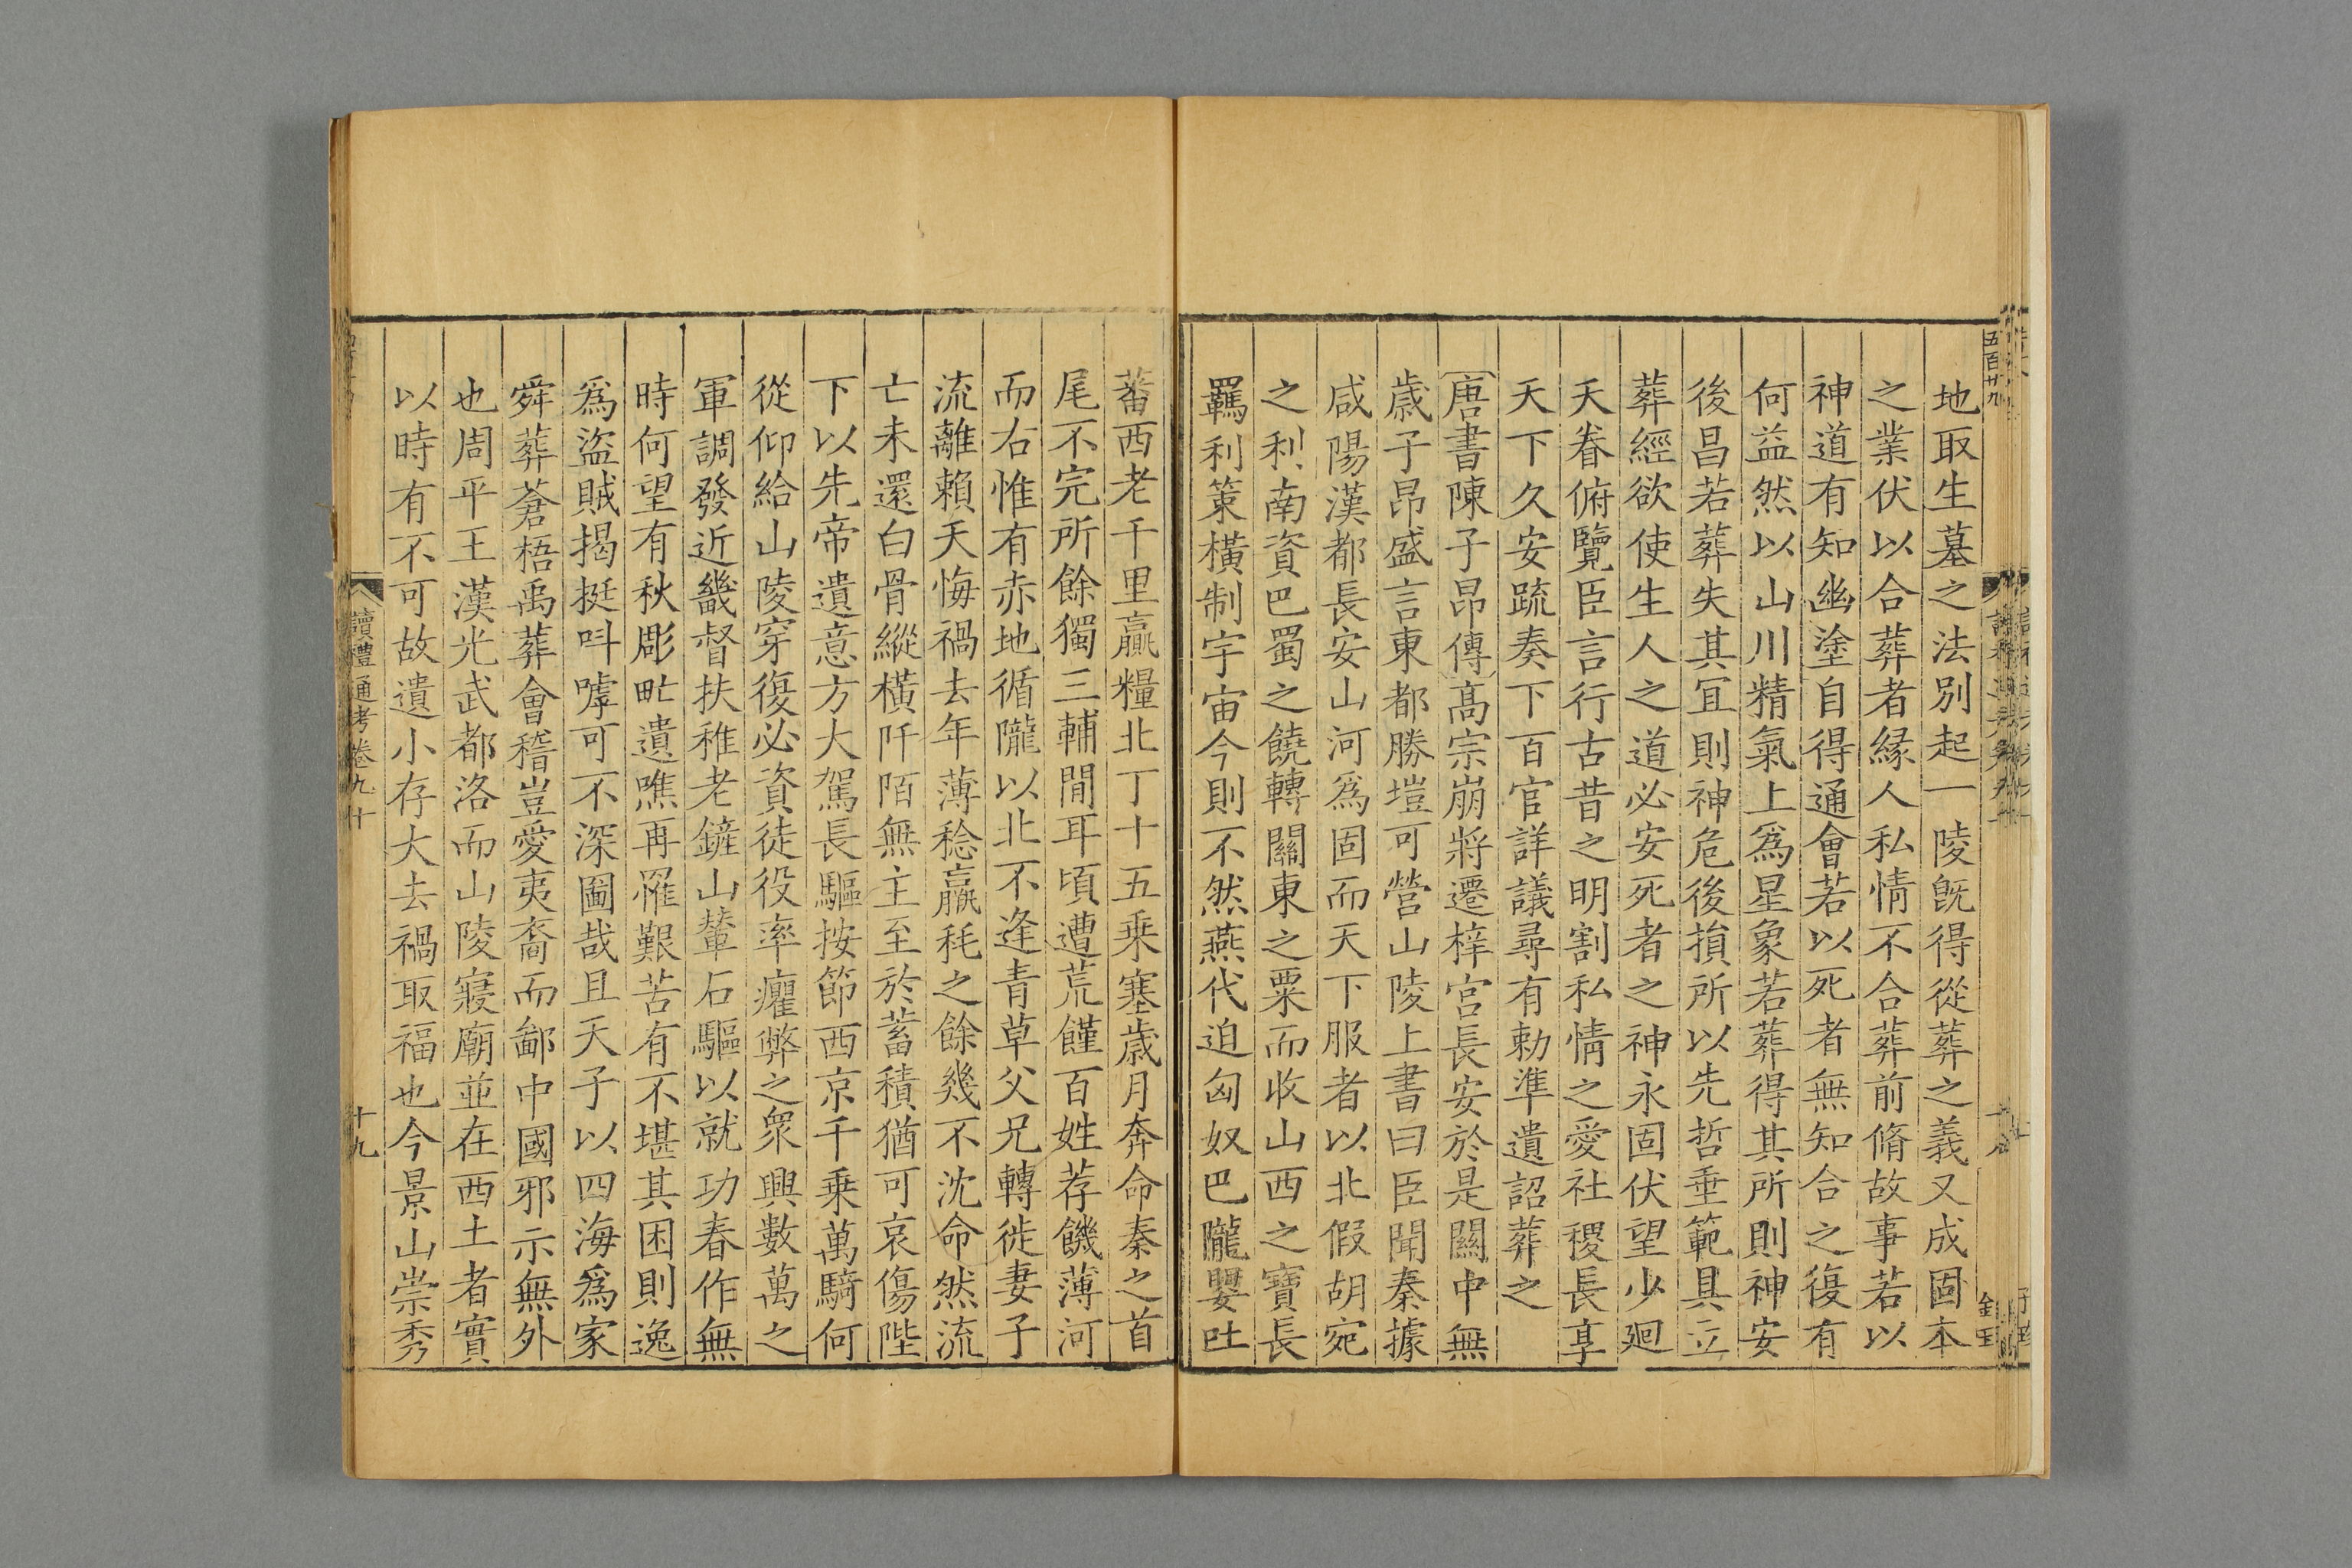 五百廿九
金玉
地取生墓之法別起一陵旣得從葬之義又成固本
之業伏以合葬者緣人私情不合葬前脩故事若以
神道有知幽塗自得通會若以死者無知合之復有
何益然以山川精氣上爲星象若葬得其所則神安
後昌若葬失其冝則神危後損所以先哲垂範具立
葬經欲使生人之道必安死者之神永固伏望少廻
天眷俯覽臣言行古昔之明割私情之愛社稷長享
天下久安疏奏下百官詳議尋有勅準遺詔葬之
唐書陳子昂傳高宗崩將遷梓宮長安於是關中無
歲子昂盛言東都勝塏可營山陵上書曰臣聞秦據
咸陽漢都長安山河爲固而天下服者以北假胡宛
之利南資巴蜀之饒轉關東之粟而收山西之寶長
羈利策橫制宇宙今則不然燕代迫匈奴巴隴嬰吐
蕃西老千里贏糧北丁十五乗塞歲月奔命秦之首
尾不完所餘獨三輔間耳頃遭荒饉百姓荐饑薄河
而右惟有赤地循隴以北不逢青草父兄轉徙妻子
流離賴天悔禍去年薄稔羸秏之餘幾不沈命然流
亡未還白骨縱橫阡陌無主至於蓄積猶可哀傷陛
下以先帝遺意方大駕長驅按節西京千乗萬騎何
從仰給山陵穿復必資徒役率癯弊之衆興數萬之
軍調發近畿督扶稚老鏟山輦石驅以就功春作無
時何望有秋彫甿遺噍再罹艱苦有不堪其困則逸
爲盜賊揭挺呌嘑可不深圖哉且天子以四海爲家
舜葬蒼梧禹葬會稽豈愛夷裔而鄙中國邪示無外
也周平王漢光武都洛而山陵寢廟並在西土者實
以時有不可故遺小存大去禍取福也今景山崇秀
讀禮通考卷九十
十九